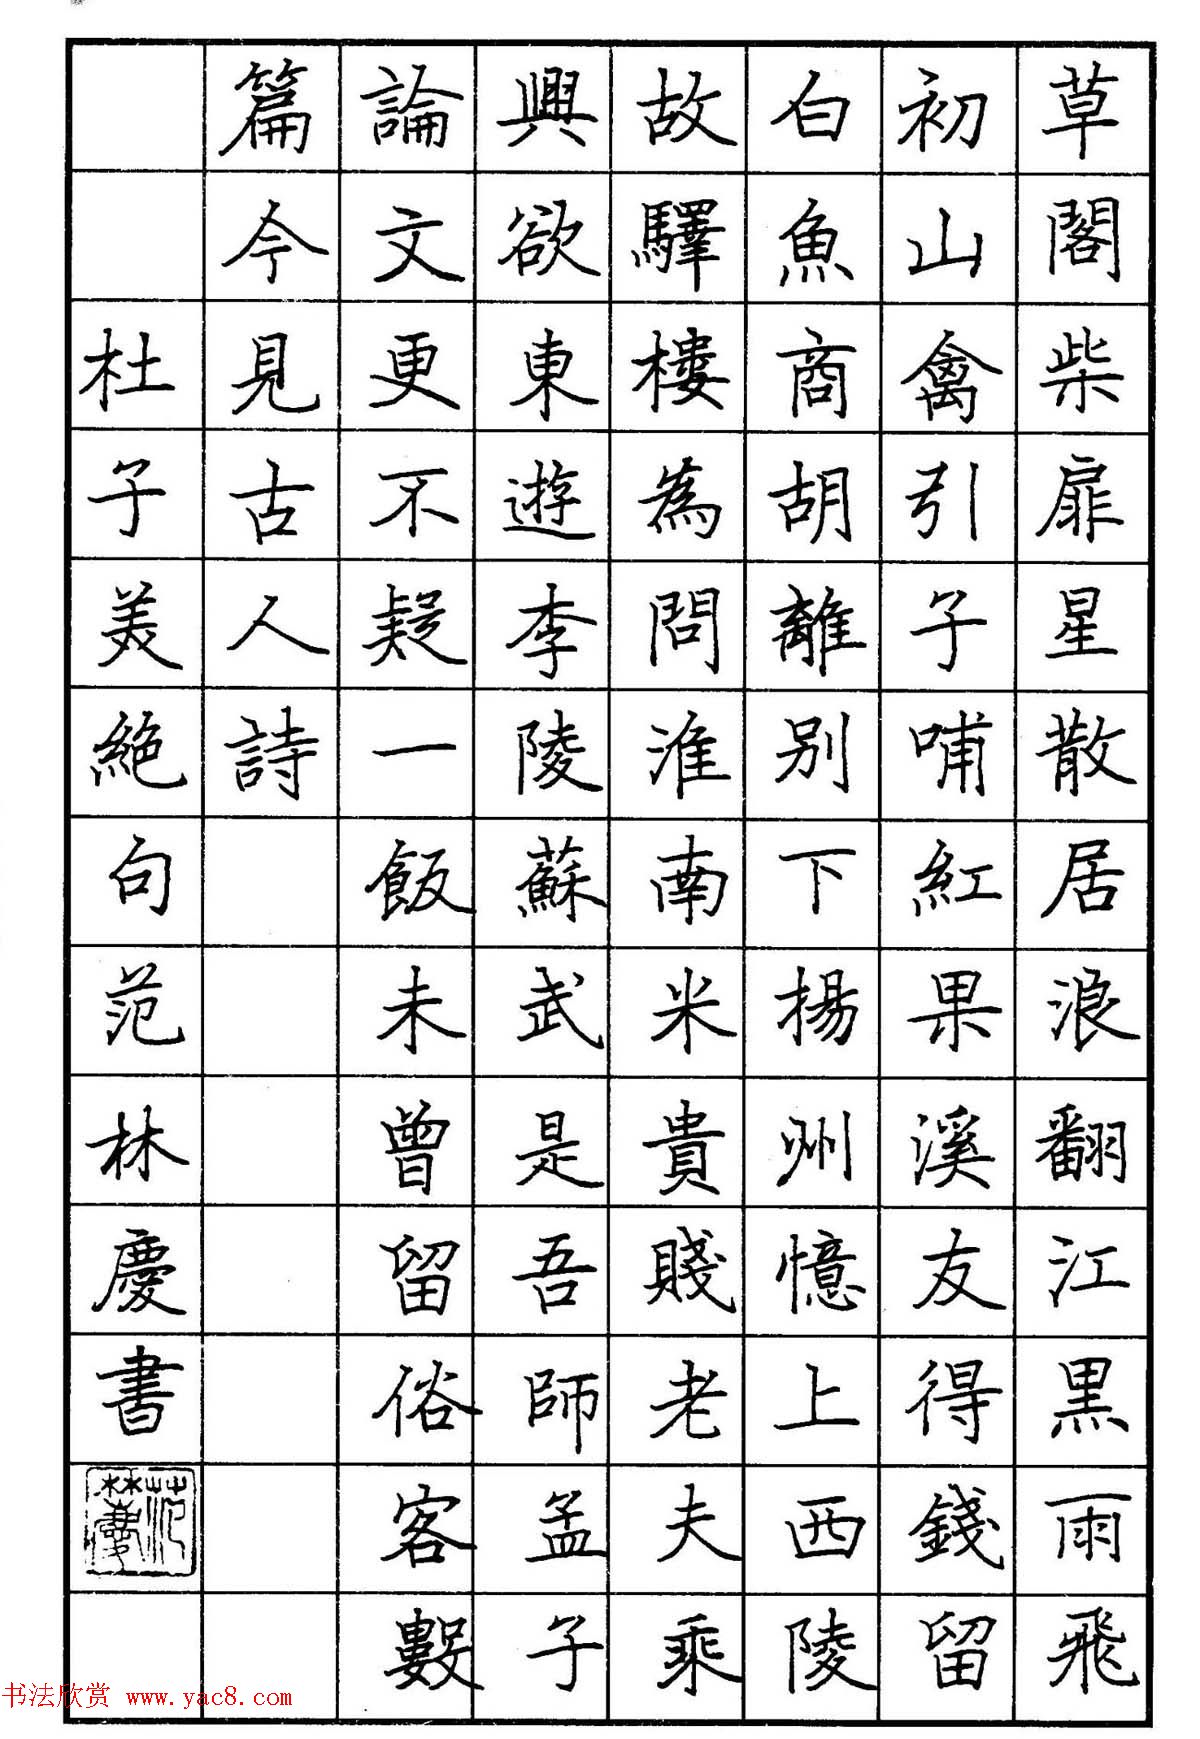 草閣柴扉星散居浪翻江黑雨飛
初山禽引子哺紅果溪友得錢留
白魚商胡離別下揚州憶上西陵
故驛樓為問淮南米貴賤老夫乘
興欲東遊李陵蘇武是吾師孟子
論文更不疑一飯未曾留俗客數
篇今見古人詩
杜子美絕句范林慶書
范林慶
书法欣赏 www.yac8.com